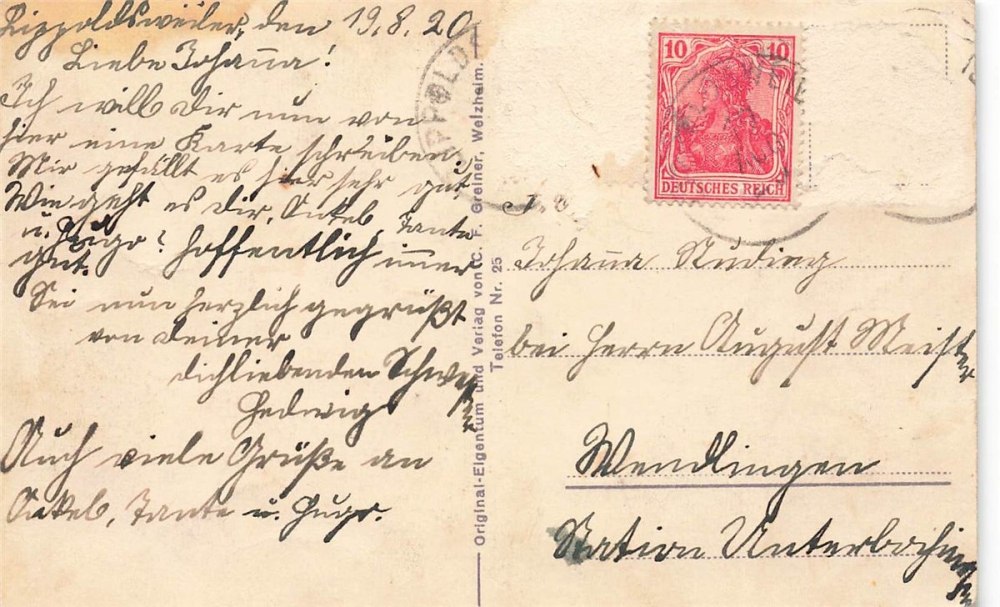 Rippoldsweiler, den 19.8.20
Liebe Johanna!
Ich will Dir nun von
hier eine Karte schreiben.
Mir gefällt es hier sehr gut
Wie geht es Dir, Onkel, Tante
u. Hugo? Hoffentlich immer
gut.
Sei nun herzlich gegrüßt
von Deiner
Dichliebenden Schwester
Hedwig
Auch viele Grüße an
Onkel, Tante u. Hugo.
Original-Eigentum und Verlag von C. F. Greiner, Welzheim.
Telefon Nr. 25
10 10
DEUTSCHES REICH
Johanna
bei Herrn August Meister
Wendlingen
Station